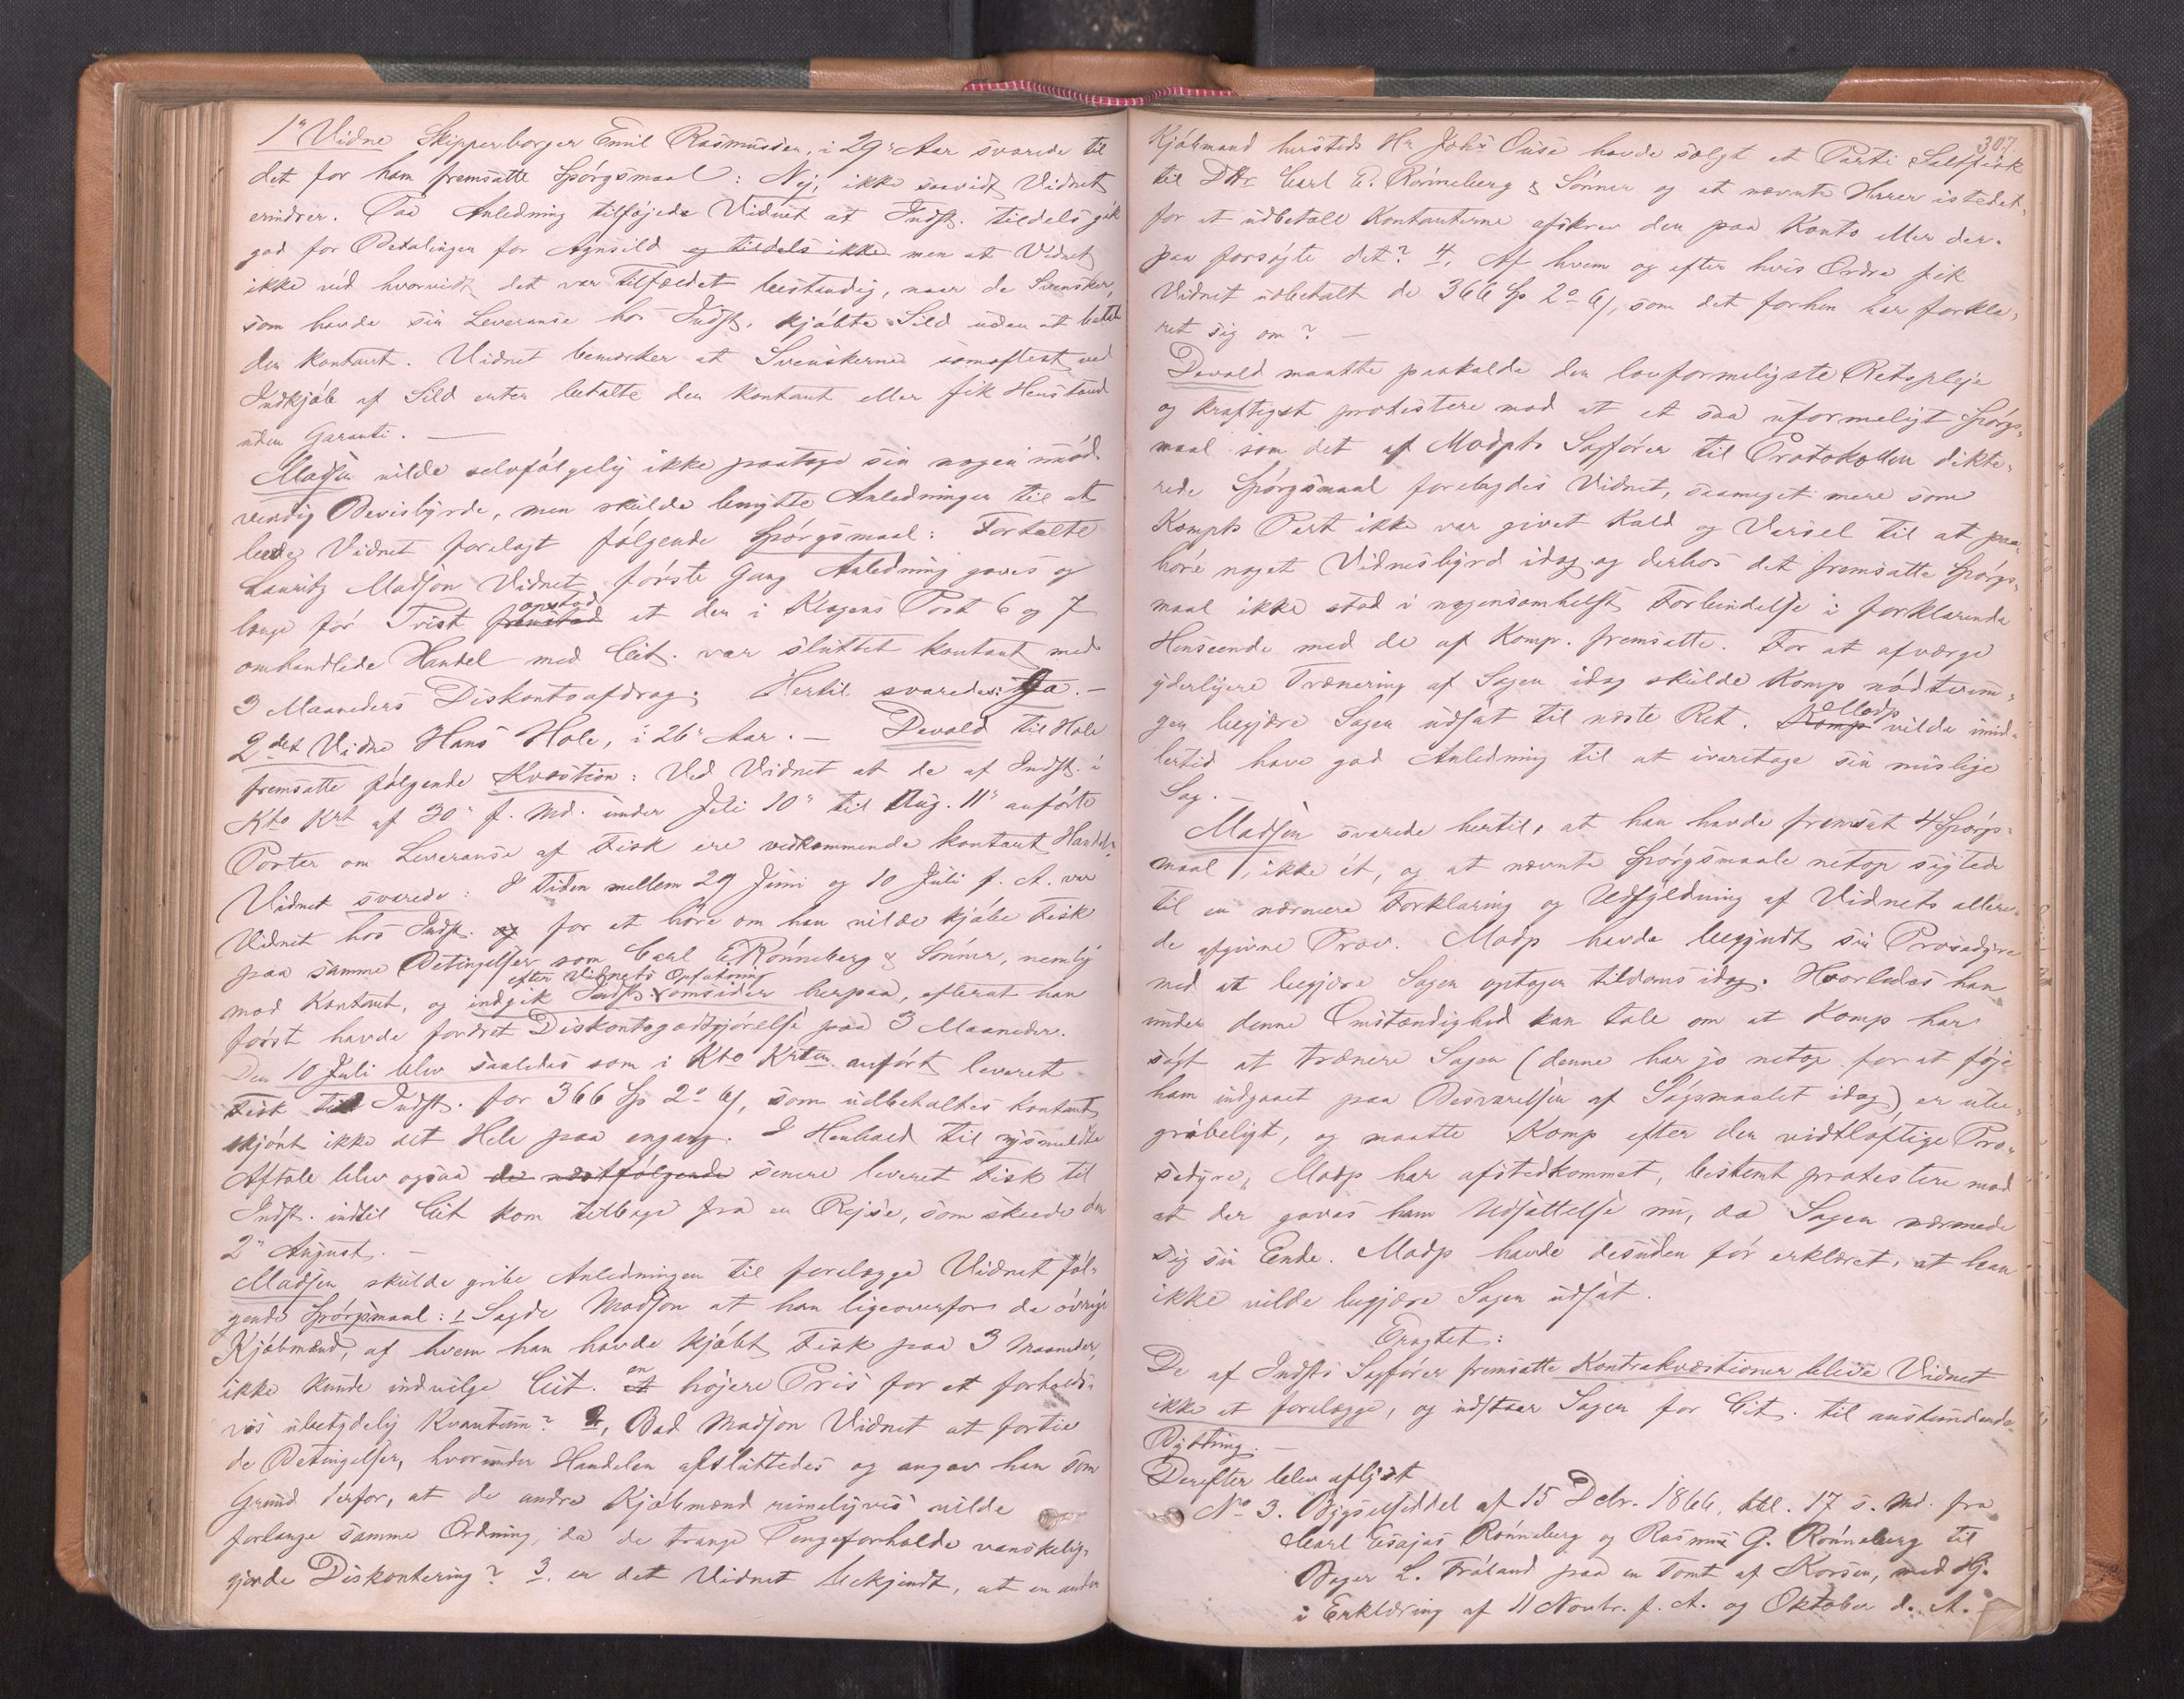 1ᵉ Vidne Skipperborger Emil Rasmussen, i 29ᵈ Aar svarede til
det for ham fremsatte Spörgsmaal: Nej, ikke saavidt Vidnet
erindrer. Paa Anledning tilföjede Vidnet at Indst. tildels gik
god for Betalingen for Agnsild og tildels ikke men at Vidnet
ikke ved hvorvidt det var Tilfældet bestandig, naar de Svensker,
som havde sin Leveranse hos Indst. kjöbte Sild uden at betale
den kontant. Vidnet bemærker at Svenskerne somoftest ved
Indkjöb af Sild enten betalte den kontant eller fik Henstand
uden Garanti. —
Madsen vilde selvfölgelig ikke paatage sin nogen unöd-
vendig Bevisbyrde, men skulde benytte Anledningen til at
bede Vidnet forelagt fölgende Spörgsmaal: Fortalte
Lauritz Madson Vidnet förste Gang Anledning gaves og
længe för Trist fremstod opstod at den i Klagens Post 6 og 7
omhandlede Handel med Cit. var sluttet kontant med
3 Maaneders Diskontoafdrag. Hertil svaredes: Ja. —
2det Vidne Hans Hole, i 26ᵈ Aar. — Devold til Hole
fremsatte fölgende Kvæstion: Ved Vidnet at de af Indst. i
Kto Krt af 30ᵈ f. Md. under Juli 10ᵈ til Aug. 11ᵈ anförte
Poster om Leveranse af Fisk ere vedkommende kontant Handel.
Vidnet svarede: I Tiden mellem 29 Juni og 10 Juli f. A. var
Vidnet hos Indst. og for at höre om han vilde kjöbe Fisk
paa samme Betingelser som Carl E. Rönneberg & Sönner, nemlig
mod Kontant, og indgik Indst. efter Vidnets Opfatning omsider herpaa, efterat han
först havde fordret Diskontogodtgjörelse paa 3 Maaneder.
Den 10 Juli blev saaledes som i Kto Krten anfört leveret
Fisk til Indst. for 366 Sp 2 ort 6 s, som udbetaltes kontant
skjönt ikke det Hele paa engang. I Henhold til nysmeldte
Aftale blev ogsaa de næstfölgende senere leveret Fisk til
Indst. indtil Cit kom tilbage fra en Rejse, som skeede den
2ᵈ August. —
Madsen skulde gribe Anledningen til forelægge Vidnet föl-
gende Spörgsmaal: 1 Sagde Madson at han ligeoverfor de övrige
Kjöbmænd, af hvem han havde kjöbt Fisk paa 3 Maaneder,
ikke kunde indvilge Cit. et en höjere Pris for et forholds-
vis ubetydelig Kvantum? 2, Bad Madson Vidnet at fortie
de Betingelser, hvorunder Handelen afsluttedes og angav han som
Grund derfor, at de andre Kjöbmænd rimeligvis vilde
forlange samme Ordning, da de trange Pengeforholde vanskelig-
gjorde Diskontering? 3. er det Vidnet bekjendt, at en anden
307.
Kjöbmand hersteds Hr Johs Ouse havde solgt et Parti Saltfisk
til DHr Carl E. Rönneberg & Sönner og at nævnte Herrer istedet-
for at udbetale Kontanterne afskrev den paa Konto eller der-
paa forsögte det? 4. Af hvem og efter hvis Ordre fik
Vidnet udbetalt de 366 Sp 2 ort 6 s, som det forhen har forkla-
ret sig om? —
Devold maatte paakalde den lovformeligste Retspleje
og kraftigst protistere mod at et saa uformeligt Spörgs-
maal som det af Modpts Sagförer til Protokollen dikte-
rede Spörgsmaal forelagdes Vidnet, saameget mere som
Kompts Part ikke var givet Kald og Varsel til at paa-
höre noget Vidnesbyrd idag og derhos det fremsatte Spörgs-
maal ikke stod i nogensomhelst Forbindelse i forklarende
Henseende med de af Komp. fremsatte. For at afværge
yderligere Trænering af Sagen idag skulde Komp nödtvun-
gen begjære Sagen udsat til næste Ret. Komp Modp vilde imid-
lertid have god Anledning til at ivaretage sin mislige
Sag. —
Madsen svarede hertil, at han havde fremsat 4 Spörgs-
maal, ikke ét, og at nævnte Spörgsmaale netop sigtede
til en nærmere Forklaring og Udfyldning af Vidnets allere-
de afgivne Prov. Modp havde begyndt sin Prosedyre
med at begjære Sagen optagen tildoms idag. Hvorledes han
under denne Omstændighed kan tale om at Komp har
sögt at trænere Sagen (denne har jo netop for at föje
ham indgaaet paa Besvarelsen af Sögsmaalet idag) er ube-
gribeligt, og maatte Komp efter den vidtlöftige Pro-
sedyre, Modp har afstedkommet, bestemt protestere mod
at der gaves ham Udsættelse nu, da Sagen nærmede
sig sin Ende. Modp havde desuden för erklæret, at han
ikke vilde begjære Sagen udsat.
Eragtet:
De af Indsts Sagförer fremsatte Kontrakvæstioner blive Vidnet
ikke at forelægge, og udstaar Sagen for Cit. til anstundende
Bytting. —
Derefter blev aflyst
No 3. Bygselseddel af 15 Debr. 1866, thl. 17 s. Md. fra
Carl Esajas Rönneberg og Rasmus G. Rönneberg til
Bager L. Fröland paa en Tomt af Korsen, med Hj.
i Erklæring af 11 Novbr. f. A. og Oktober d. A.